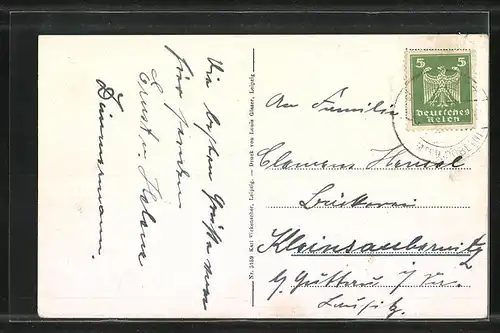 Die besten Grüße von
hier senden
Ernst u. Helene
Zimmermann.
Nr. 2189 Karl Virkotscher, Leipzig. – Druck von Louis Glaser, Leipzig
5 5
Deutsches
Reich
An Familie
Clemens Hensel
Bäckerei
Kleinsaubernitz
b. Guttau
Lausitz.